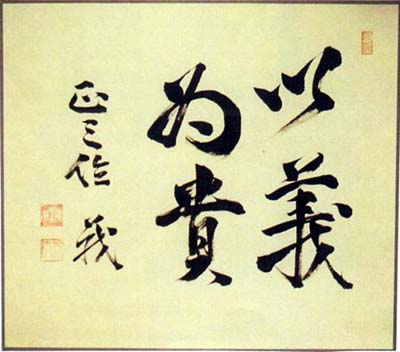 以義
為貴
正三位